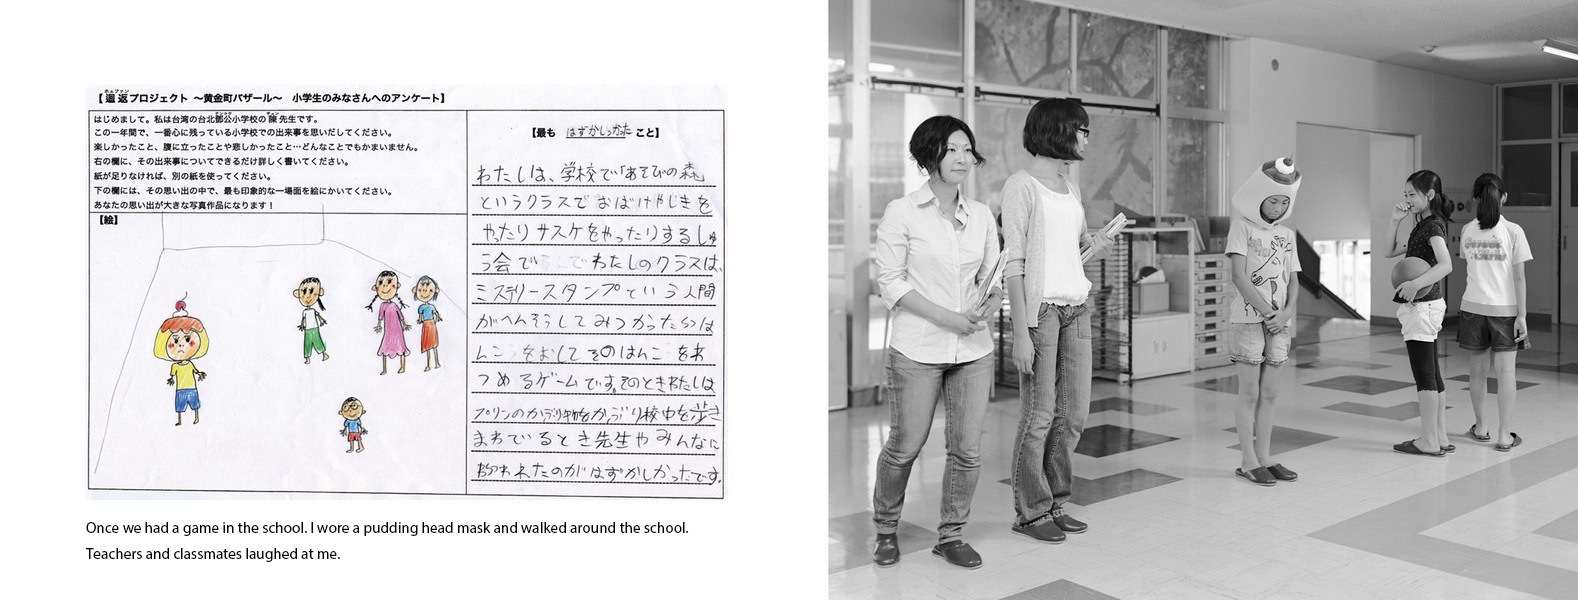 【迴返プロジェクト ～黄金町バザール～　小学生のみなさんへのアンケート】
はじめまして。私は台湾の台北鄧公小学校の陳先生です。
この一年間で、一番心に残っている小学校での出来事を思いだしてください。
楽しかったこと、腹に立ったことや悲しかったこと…どんなことでもかまいません。
右の欄に、その出来事についてできるだけ詳しく書いてください。
紙が足りなければ、別の紙を使ってください。
下の欄には、その思い出の中で、最も印象的な一場面を絵にかいてください。
あなたの思い出が大きな写真作品になります！
【絵】
【最も はずかしかった こと】
わたしは、学校で「あそびの森
というクラスでおばけやしきを
やったりサスケをやったりするしゅ
う会で わたしのクラスは、
ミステリースタンプという人間
がへんそうしてみつかったらは
んこをおしてそのはんこをあ
つめるゲームです。そのときわたしは
プリンのかぶり物をかぶり校中を歩き
まわているとき先生やみんなに
われたのがはずかしかったです。
Once we had a game in the school. I wore a pudding head mask and walked around the school.
Teachers and classmates laughed at me.